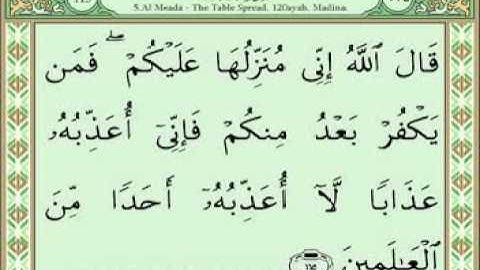 5.Al Meada - The Table Spread, 120ayah, Madina
قَالَ ٱللَّهُ إِنِّى مُنَزِّلُهَا عَلَيْكُمْ ۖ فَمَن
يَكْفُرْ بَعْدُ مِنكُمْ فَإِنِّىٓ أُعَذِّبُهُۥ
عَذَابًا لَّآ أُعَذِّبُهُۥٓ أَحَدًا مِّنَ
ٱلْعَٰلَمِينَ ١١٥